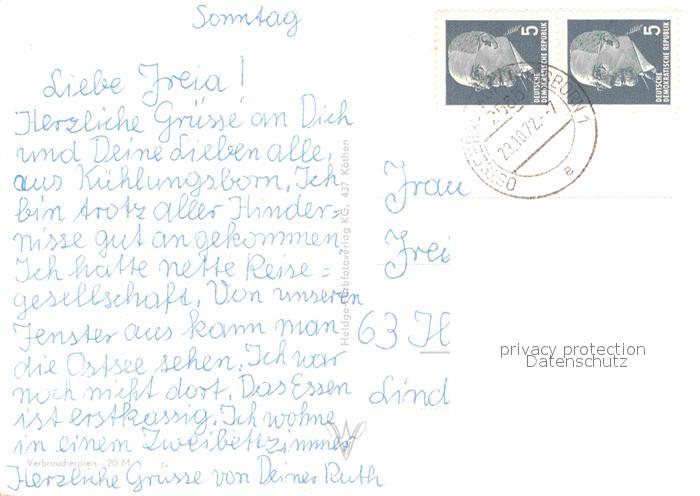 Sonntag
Liebe Freia!
Herzliche Grüsse an Dich
und Deine Lieben alle,
aus Kühlungsborn. Ich
bin trotz aller Hinder=
nisse gut angekommen
Ich hatte nette Reise=
gesellschaft. Von unseren
Fenster aus kann man
die Ostsee sehen. Ich war
noch nicht dort. Das Essen
ist erstkassig. Ich wohne
in einem Zweibettzimmer
Herzliche Grüsse von Deiner Ruth
Verbraucherpreis -20 M
Köthen
437
KG,
Frau
Frei
63 H
Lind
5
DEUTSCHE
DEMOKRATISCHE REPUBLIK
5
DEUTSCHE
DEMOKRATISCHE REPUBLIK
23.10.72.-7
privacy protection
Datenschutz